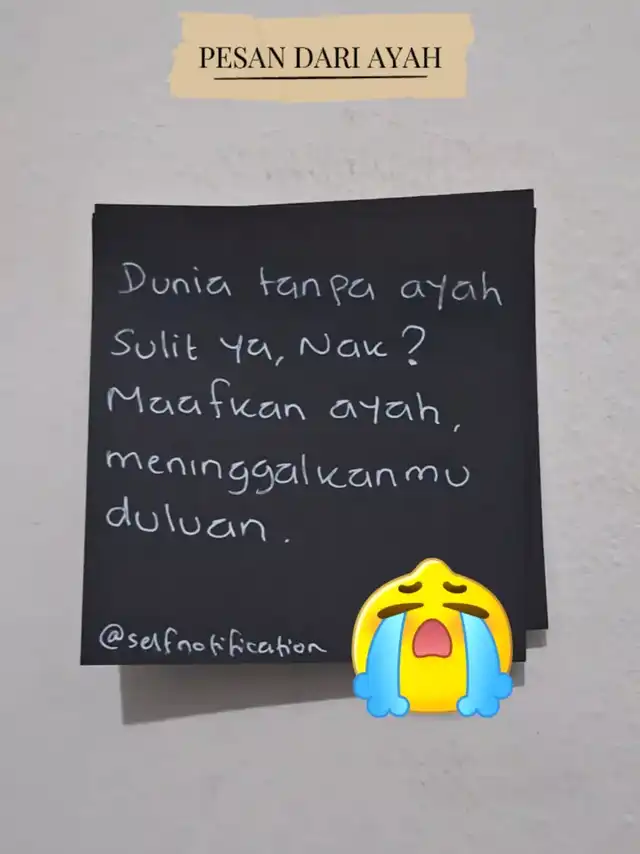 PESAN DARI AYAH
Dunia tanpa ayah
Sulit ya, Nak?
Maafkan ayah,
meninggalkanmu
duluan.
@selfnotification